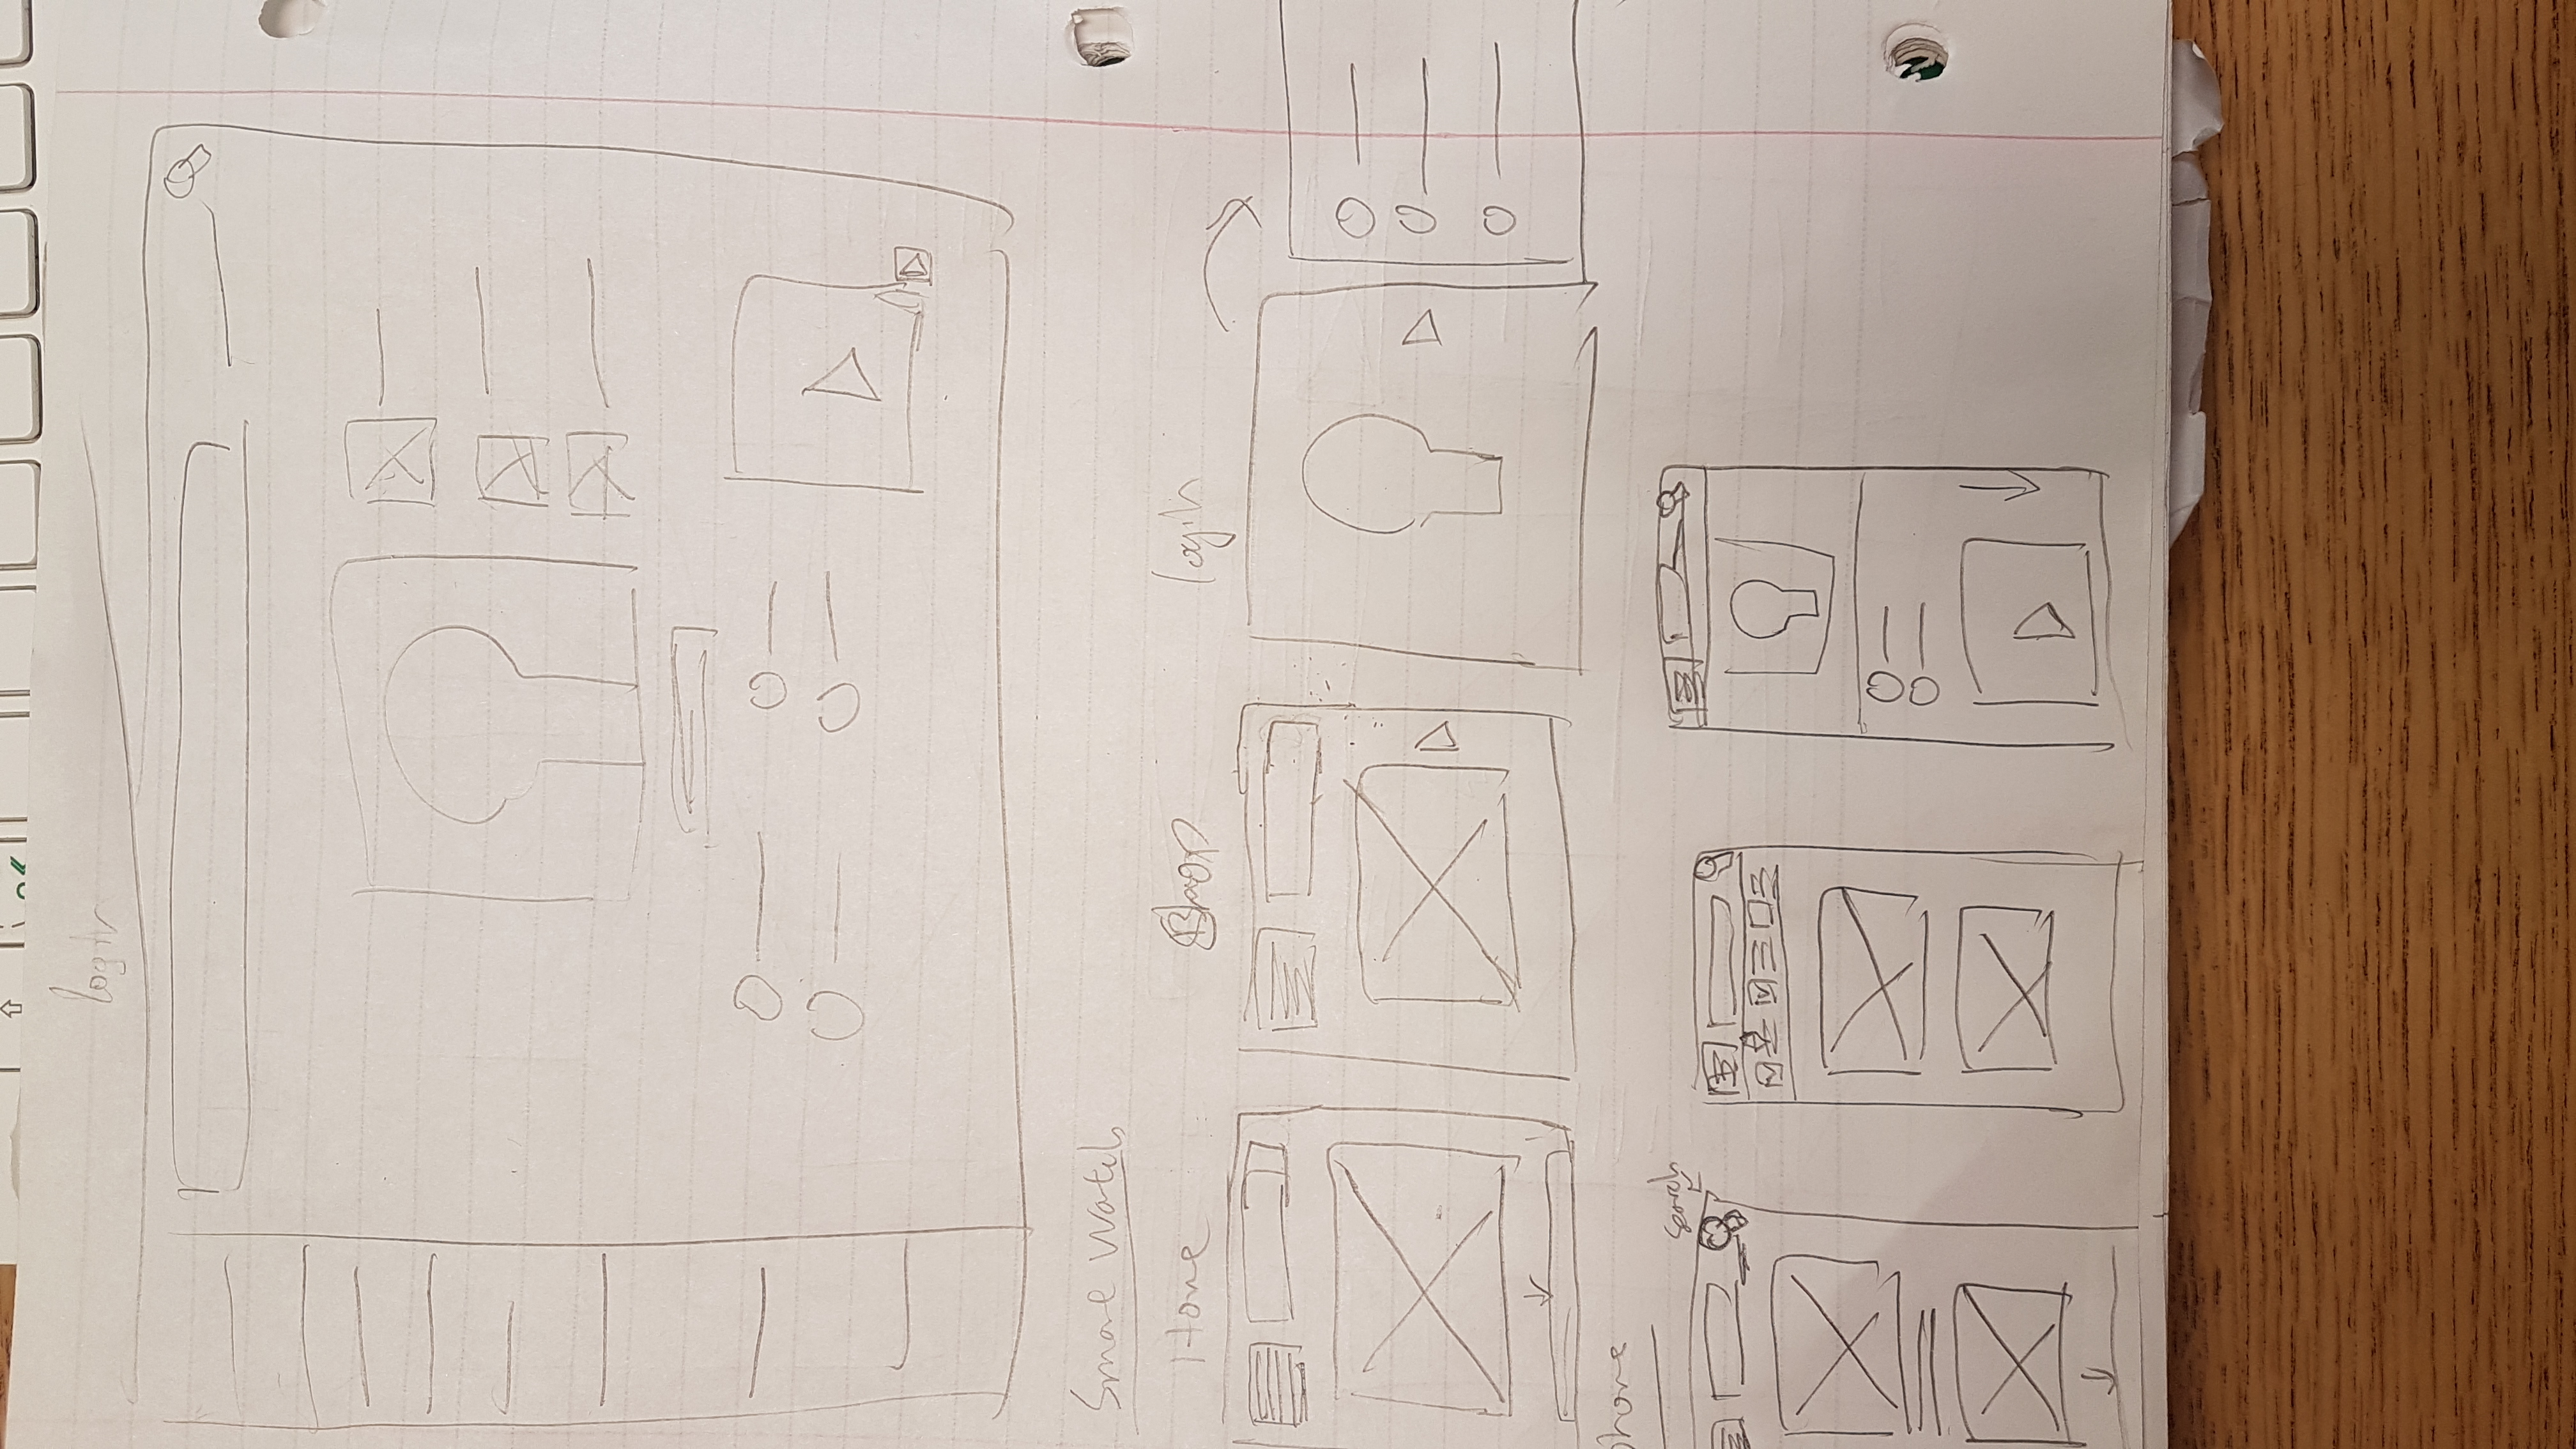 login
Smart Watch
Home Shop login
phone
search